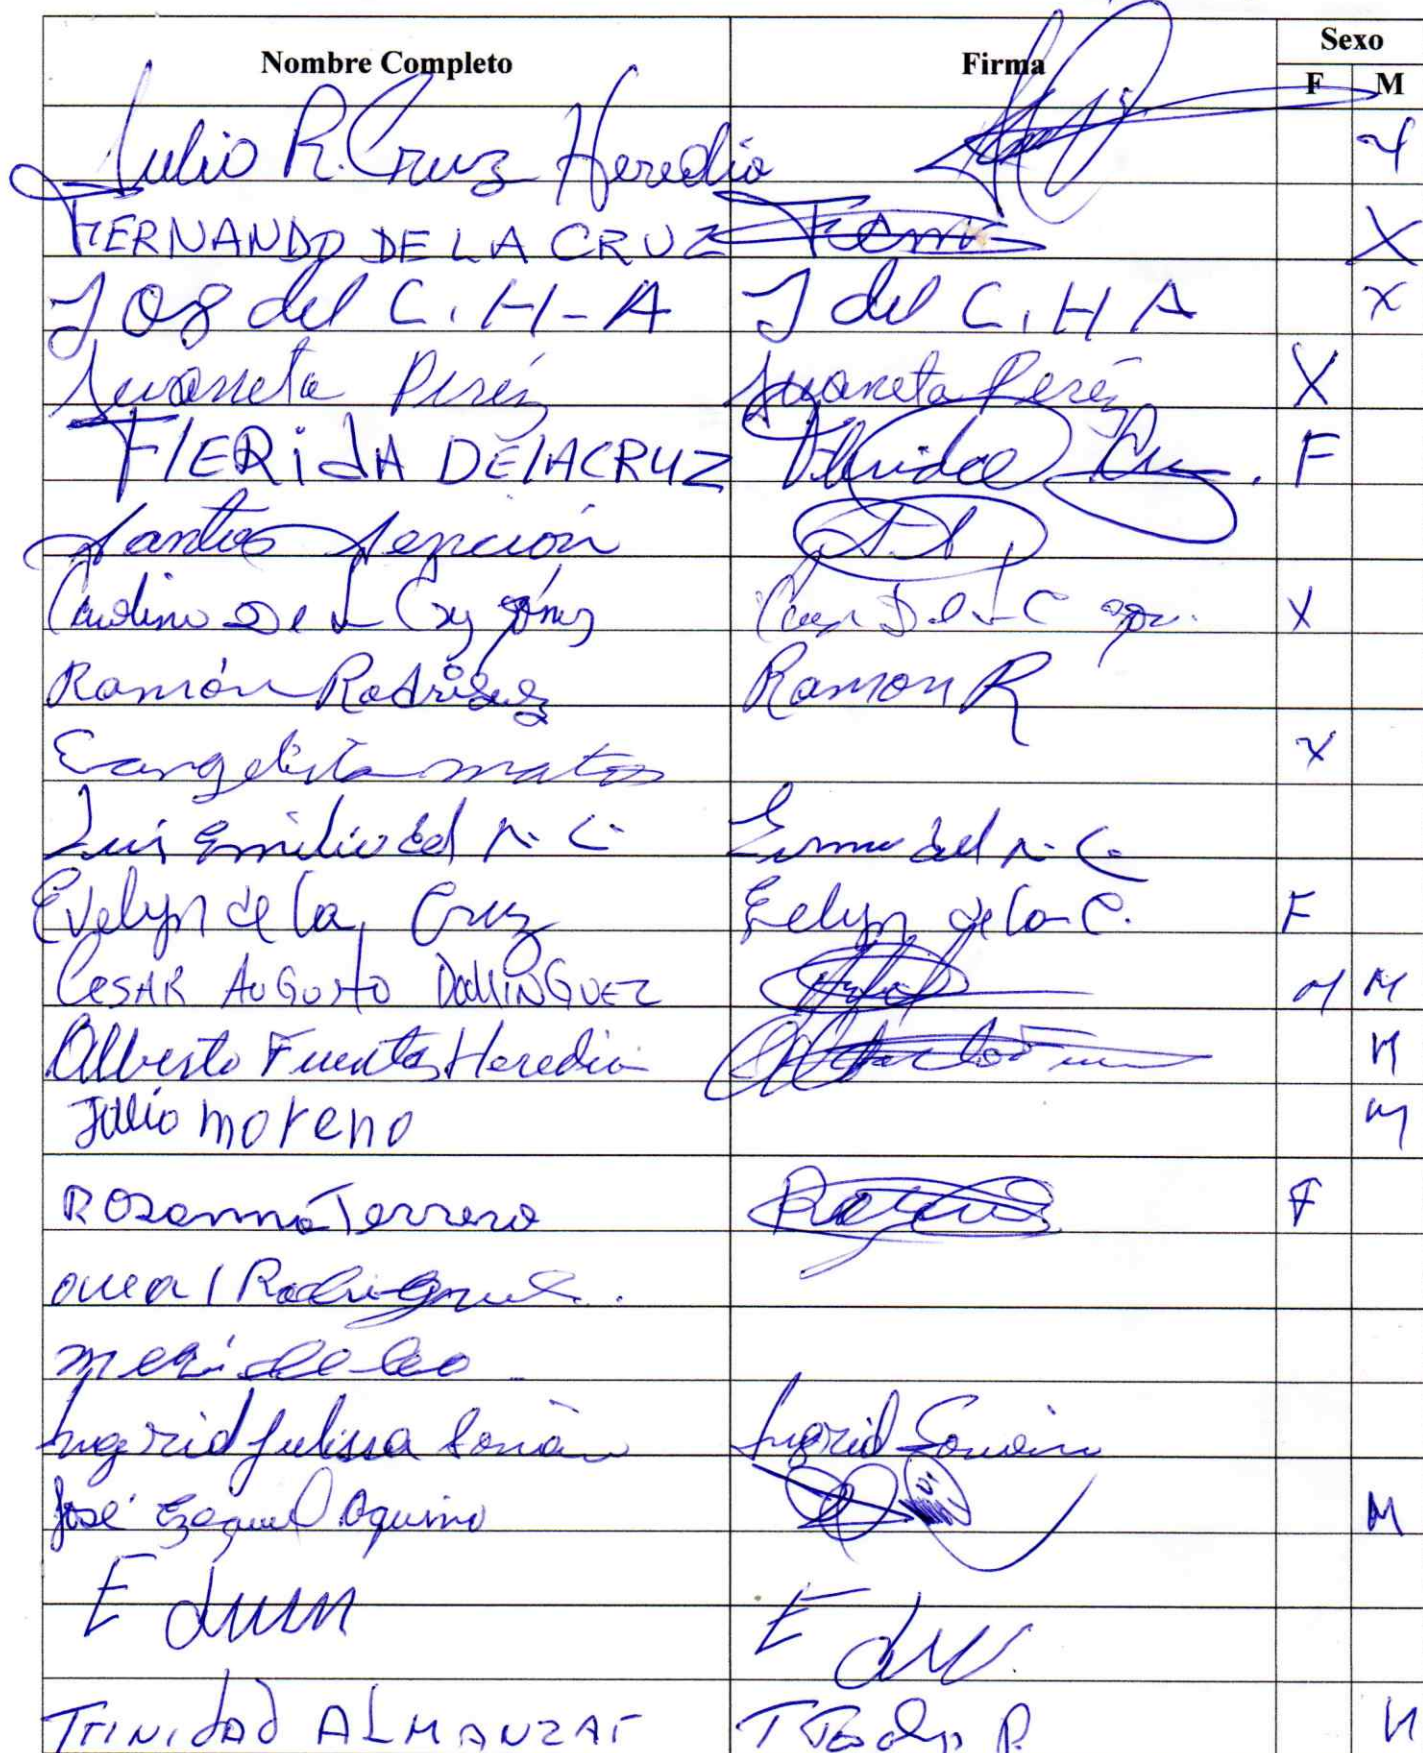 Nombre Completo Firma Sexo
F M
Julio R. Cruz Heredia
FERNANDO DE LA CRUZ X
Jos del C. H-A J del C. H A X
Juaneta Peréz Juaneta Peréz X
FlERidA DElACRUZ F
Santos Sención
De L Cruz X
Ramón Rodriguez Ramon R
Evangelista matos X
Luis Emilio del R. C. del R. C.
Evelyn de la Cruz Evelyn de la C. F
CESAR AUGUSTO DOMINGUEZ M M
Alberto Fuentes Heredia M
Julio moreno M
Rosanna Terrero F
Rodriguez
de leo
Ingrid Julissa Ingrid
José Ezequiel Aquino M
Eduin
TRINIDAD ALMANZAR M